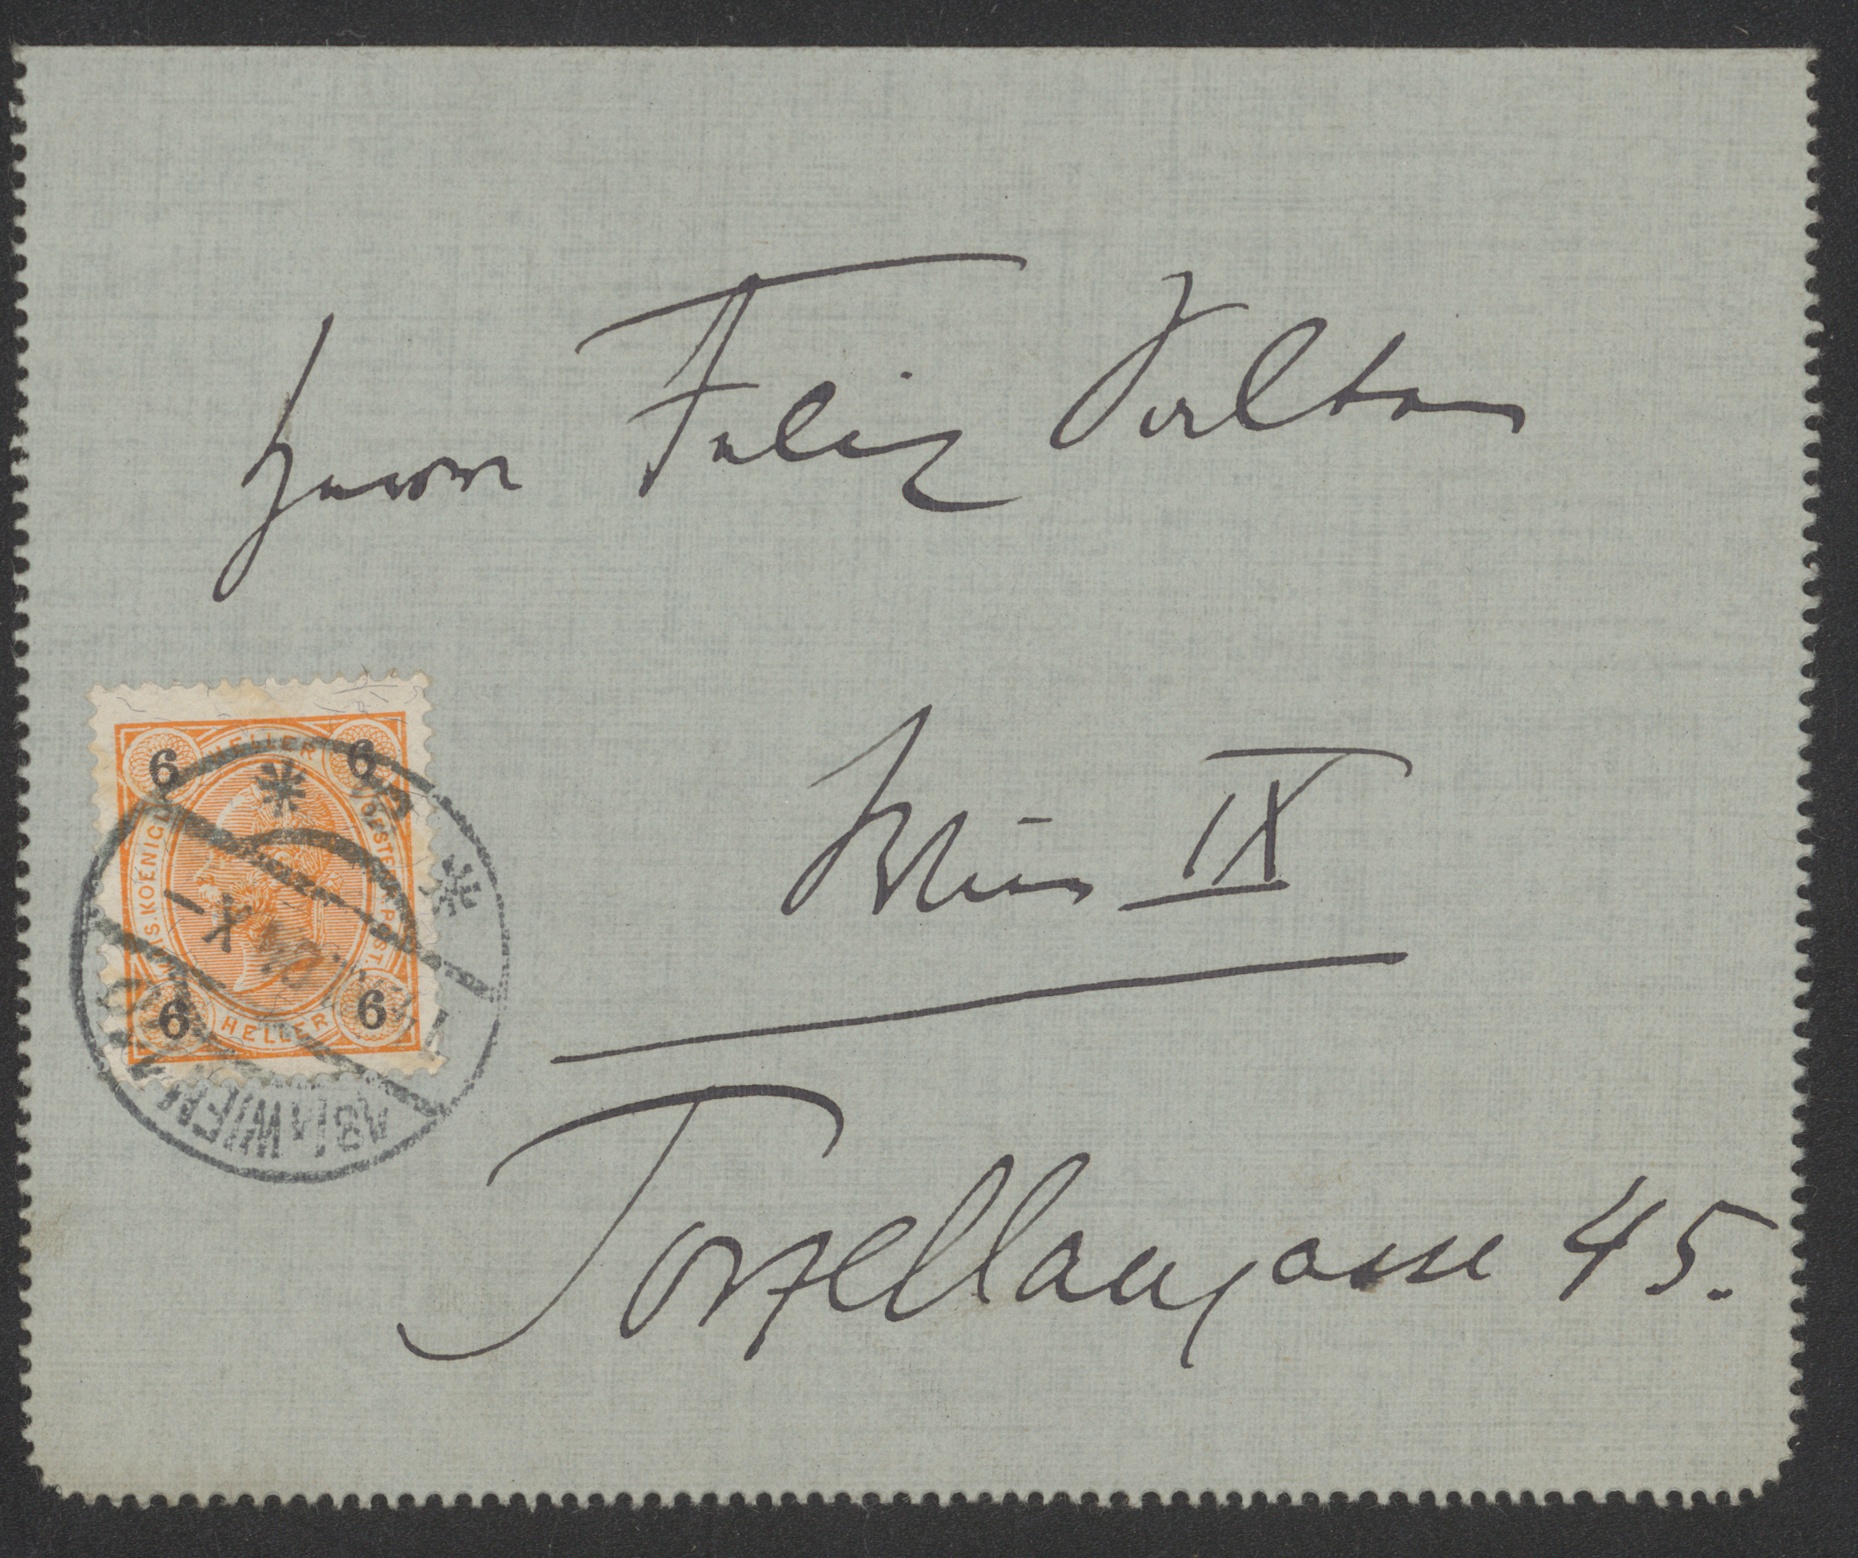 Herrn Felix Salten
Wien IX
Porzellangasse 45.
6 HELLER 6
KAIS. KOENIGL. OESTERR. POST.
6 HELLER 6
WIEN
X